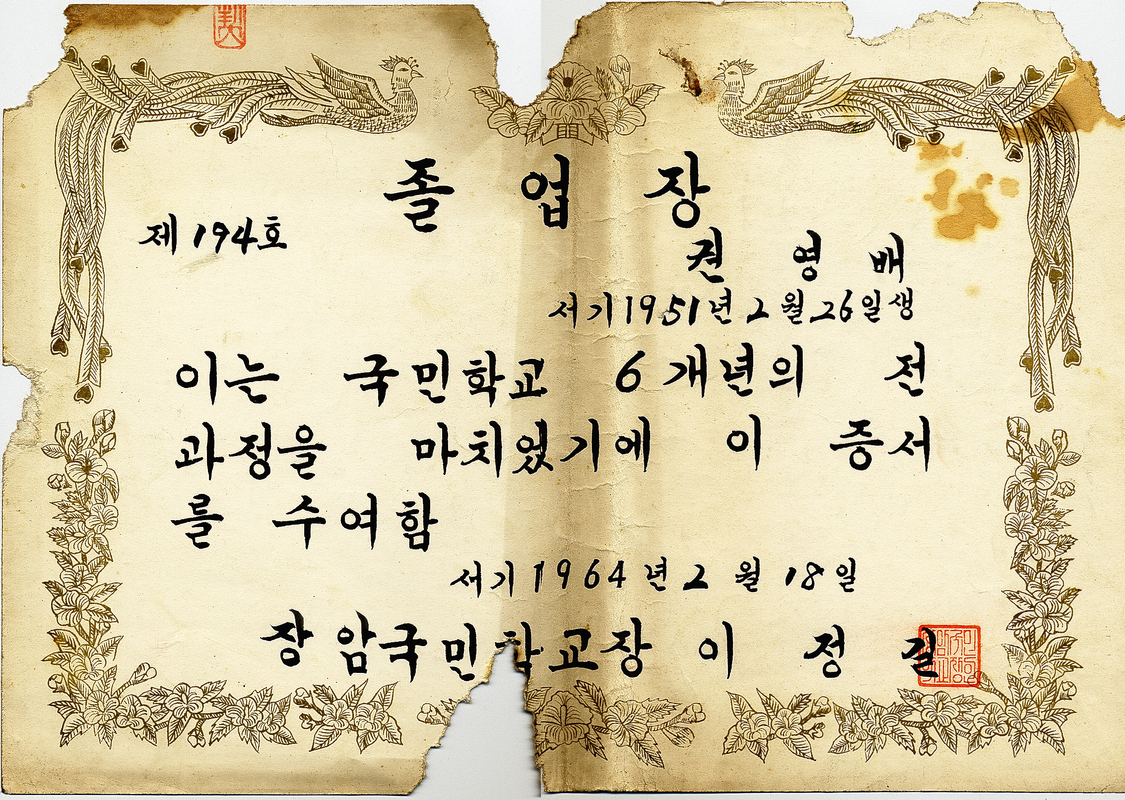 졸 업 장
제 194호
권 영 배
서기 1951년 2월 26일생
이는 국민학교 6개년의 전
과정을 마치었기에 이 증서
를 수여함
서기 1964년 2월 18일
장암국민학교장 이 정 길